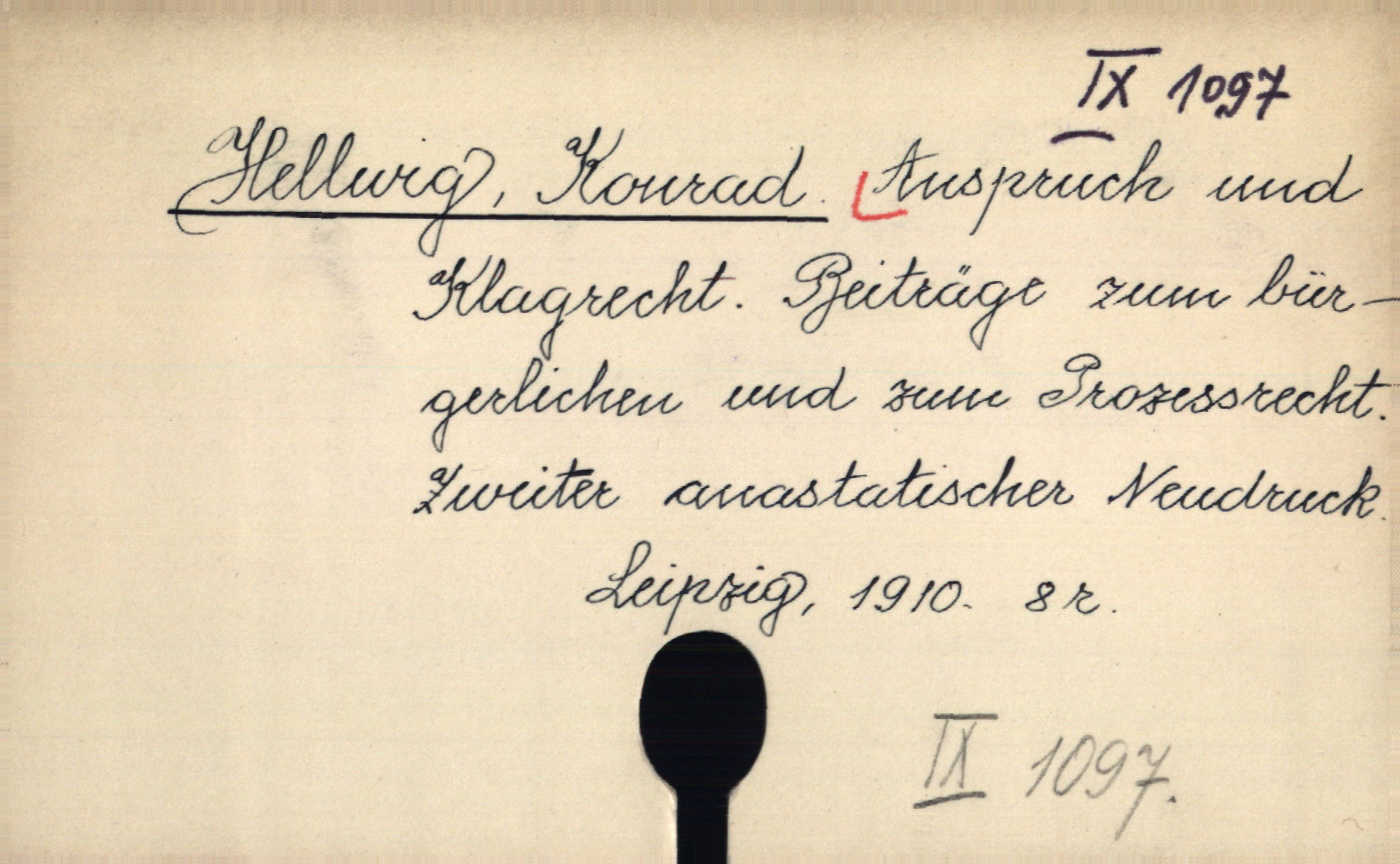 IX 1097
Hellwig, Konrad. Anspruch und
Klagrecht. Beiträge zum bür-
gerlichen und zum Prozessrecht.
Zweiter anastatischer Neudruck.
Leipzig, 1910. 8r.
IX 1097.